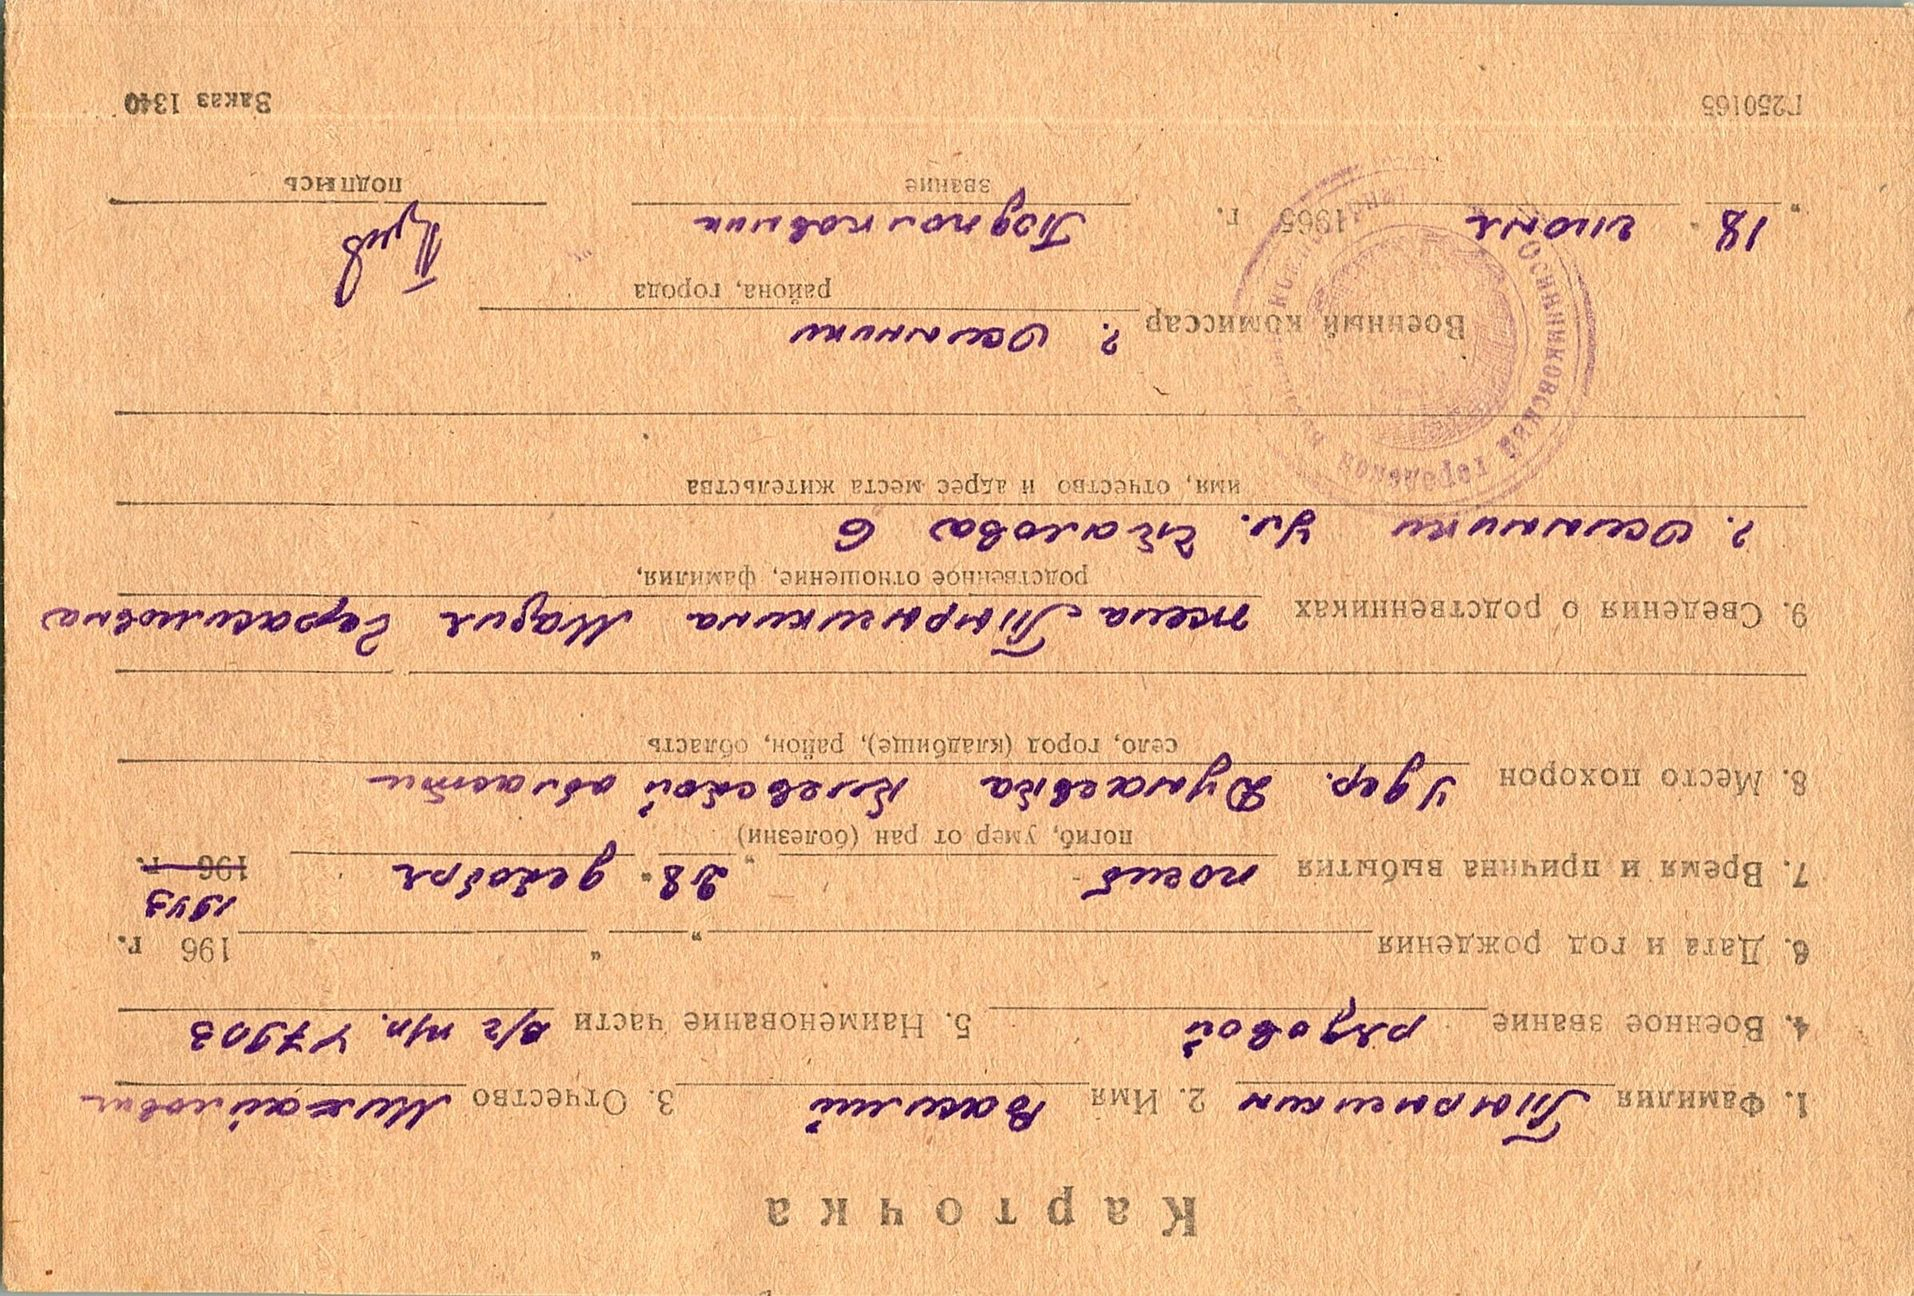 Карточка
1. Фамилия Тырышкин 2. Имя Василий 3. Отчество Михайлович
4. Военное звание рядовой 5. Наименование части в/ч п/п. 47903
6. Дата и год рождения „ “ 196 г.
1943
7. Время и причина выбытия погиб „28“ декабря 196 г.
погиб, умер от ран (болезни)
8. Место похорон У дер. Дунаевка Киевской области
село, город (кладбище), район, область
9. Сведения о родственниках жена Тырышкина Мария Герасимовна
родственное отношение, фамилия,
г. Осинники ул. Чкалова 6
имя, отчество и адрес места жительства
Военный комиссар г. Осинники
района, города
„18“ июня 1965 г. Подполковник
звание подпись
Осинниковский городской
Г250165 Заказ 1340